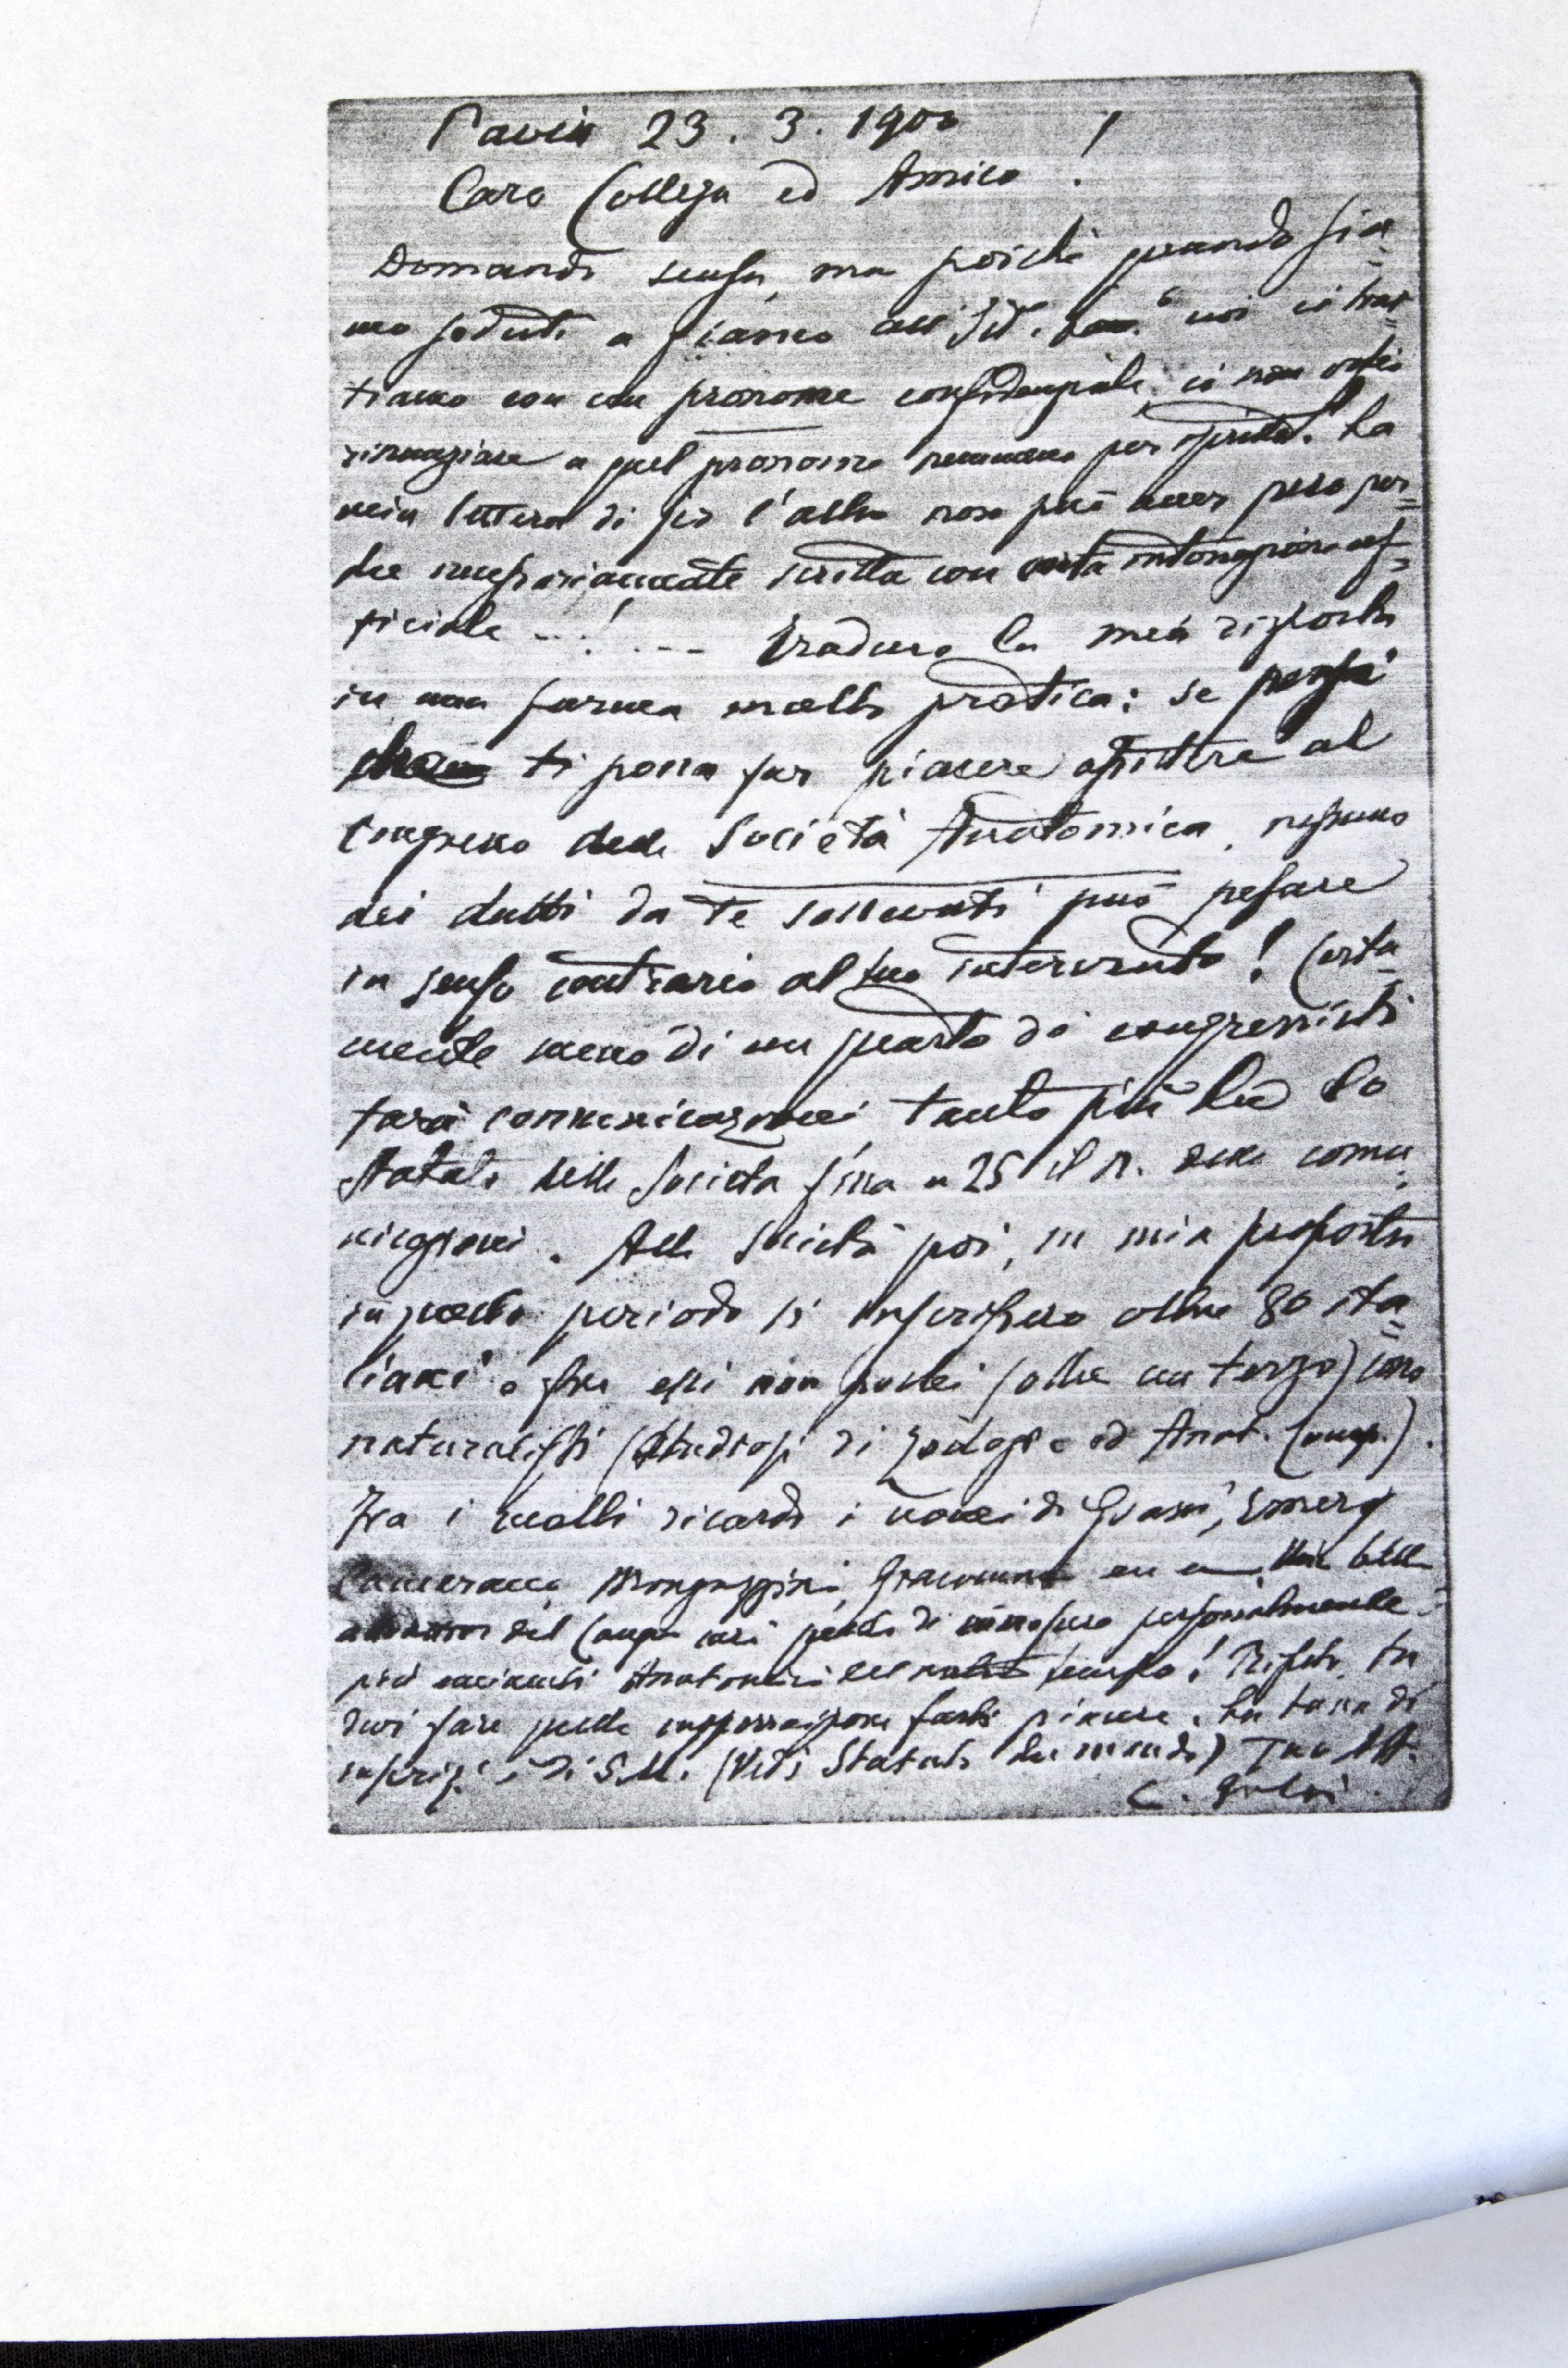 Pavia 23. 3. 1900
Caro Collega ed Amico!
Domando scusa, ma poichè quando sia=
mo seduti a fianco all'Ist. noi ci trat=
tiamo con un pronome confidenziale, io non
rinunziare a quel pronome nemmeno per iscritto. La
mia lettera di jer l'altro non può aver peso per=
che necessariamente scritta con certa intonazione uf=
ficiale ...! --- Traduco la mia risposta
in una forma molto pratica: se pensi
ti possa far piacere assistere al
Congresso della Società Anatomica, nessuno
dei dubbi da te sollevati può pesare
in senso contrario al tuo intervento! Certa=
mente meno di un quarto di congressisti
farà comunicazioni, tanto più che lo
Statuto della Società fissa a 25 il n. delle comu=
nicazioni. Alla Società poi, su mia proposta
in questo periodo si inscrissero oltre 80 ita=
liani e fra essi non pochi (oltre un terzo) sono
naturalisti (studiosi di Zoologia ed Anat. Comp.).
Fra i molti ricordo i nomi di Grassi, Emery
Camerano, Monguzzini, Giacomini
del Congr. sarà quella di conoscere personalmente
più eminenti Anatomici del nostro tempo! Ripeto, tu
devi fare quello che farti piacere. La tassa di
inscriz. è di 5 M. (Vedi Statuto che mando) Tuo Aff.
C. Golgi.